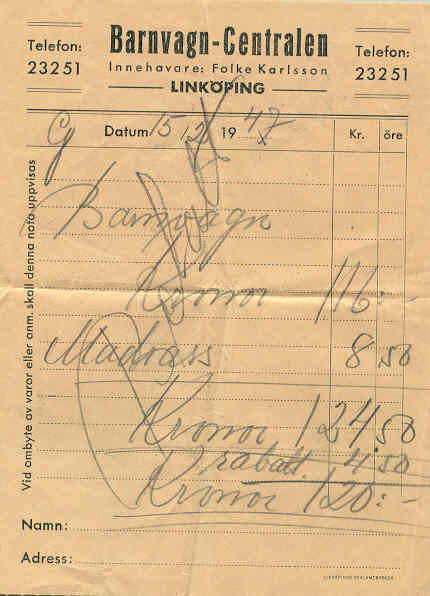 Telefon:
23251
Barnvagn-Centralen
Innehavare: Folke Karlsson
LINKÖPING
Telefon:
23251
Datum 15/2 1947
Kr. öre
Barnvagn
Kronor 116:
Madrass 8 50
Kronor 124,50
rabatt 4 50
Kronor 120:-
Namn:
Adress:
Vid ombyte av varor eller anm. skall denna nota uppvisas